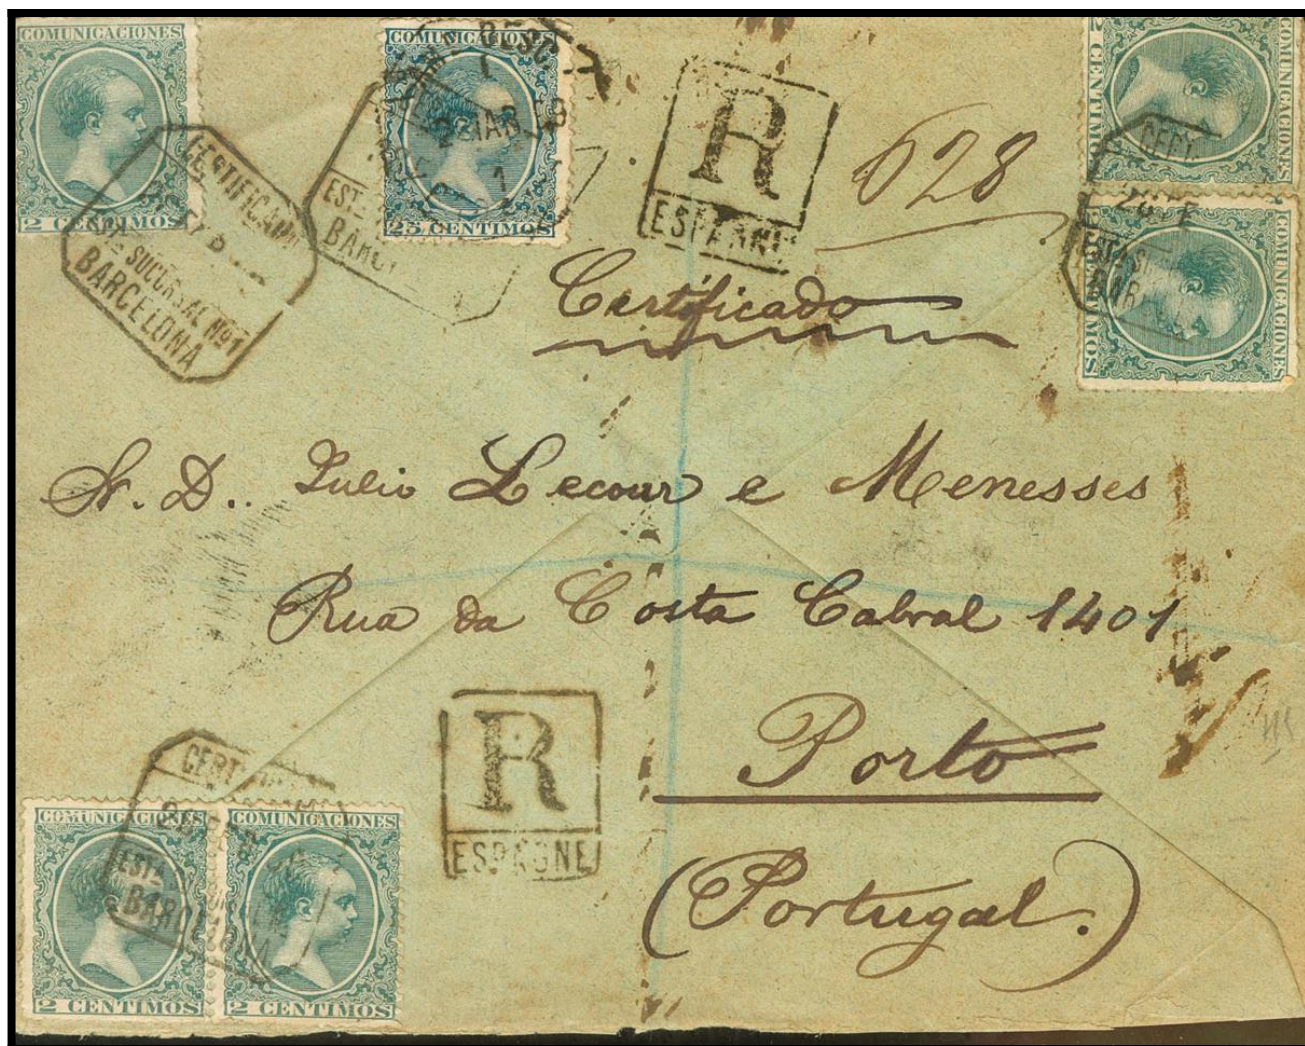 COMUNICACIONES
2 CENTIMOS
CERTIFICADO
ESTA SUCURSAL Nº 1
BARCELONA
COMUNICACIONES
25 CENTIMOS
DESC.
1
ESTA
R
ESPAGNE
628
COMUNICACIONES
2 CENTIMOS
CERT
COMUNICACIONES
Certificado
Sr. D.. Julio Lecour e Menesses
Rua da Costa Cabral 1401
Porto
(Portugal.)
R
ESPAGNE
CERT
BARCELONA
COMUNICACIONES
2 CENTIMOS
COMUNICACIONES
2 CENTIMOS